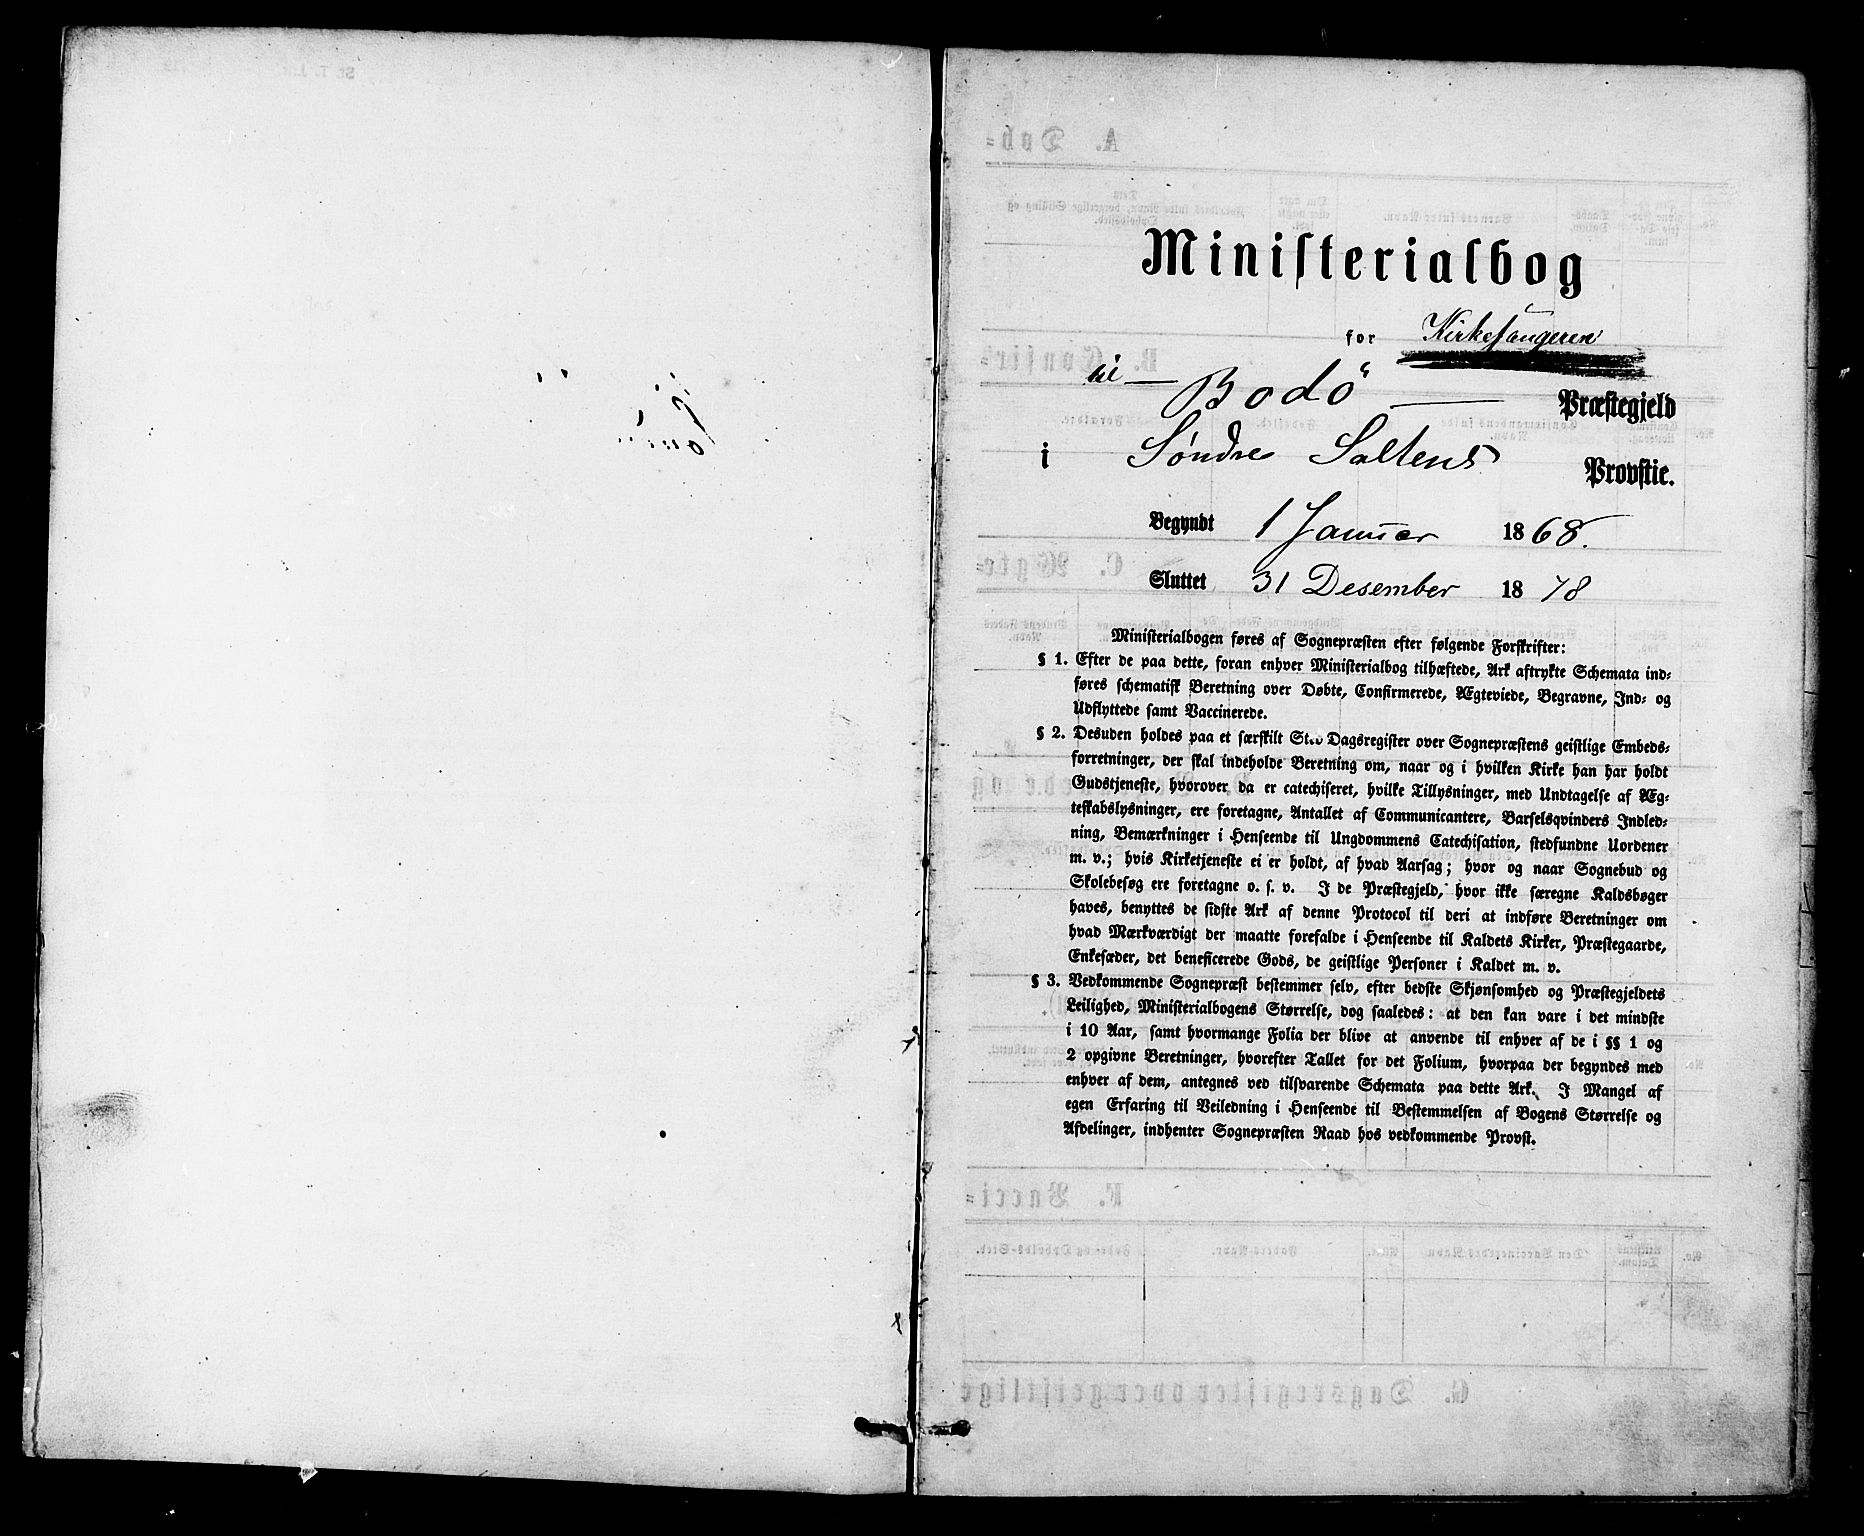 Ministerialbog
for Kirkesangeren
til — Bodö — Præstegjeld
i Søndre Saltens Provstie.
Begyndt 1 Januar 1868.
Sluttet 31 Desember 1878
Ministerialbogen føres af Sognepræsten efter følgende Forskrifter:
§ 1. Efter de paa dette, foran enhver Ministerialbog tilhæftede, Ark aftrykte Schemata ind-
føres schematisk Beretning over Døbte, Confirmerede, Ægteviede, Begravne, Ind- og
Udflyttede samt Vaccinerede.
§ 2. Desuden holdes paa et særskilt Sted Dagsregister over Sognepræstens geistlige Embeds-
forretninger, der skal indeholde Beretning om, naar og i hvilken Kirke han har holdt
Gudstjeneste, hvorover da er catechiseret, hvilke Tillysninger, med Undtagelse af Æg-
teskabslysninger, ere foretagne, Antallet af Communicantere, Barselsqvinders Indled-
ning, Bemærkninger i Henseende til Ungdommens Catechisation, stedfundne Uordener
m. v.; hvis Kirketjeneste ei er holdt, af hvad Aarsag; hvor og naar Sognebud og
Skolebesøg ere foretagne o. s. v. I de Præstegjeld, hvor ikke særegne Kaldsbøger
haves, benyttes de sidste Ark af denne Protocol til deri at indføre Beretninger om
hvad Mærkværdigt der maatte forefalde i Henseende til Kaldets Kirker, Præstegaarde,
Enkesæder, det beneficerede Gods, de geistlige Personer i Kaldet m. v.
§ 3. Vedkommende Sognepræst bestemmer selv, efter bedste Skjønsomhed og Præstegjeldets
Leilighed, Ministerialbogens Størrelse, dog saaledes: at den kan vare i det mindste
i 10 Aar, samt hvormange Folia der blive at anvende til enhver af de i §§ 1 og
2 opgivne Beretninger, hvorefter Tallet for det Folium, hvorpaa der begyndes med
enhver af dem, antegnes ved tilsvarende Schemata paa dette Ark. I Mangel af
egen Erfaring til Veiledning i Henseende til Bestemmelsen af Bogens Størrelse og
Afdelinger, indhenter Sognepræsten Raad hos vedkommende Provst.